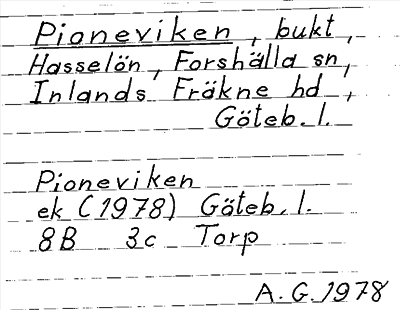 Pioneviken, bukt,
Hasselön, Forshälla sn,
Inlands Fräkne hd,
Göteb.l.
Pioneviken
ek (1978) Göteb.l.
8B 3c Torp
A.G.1978